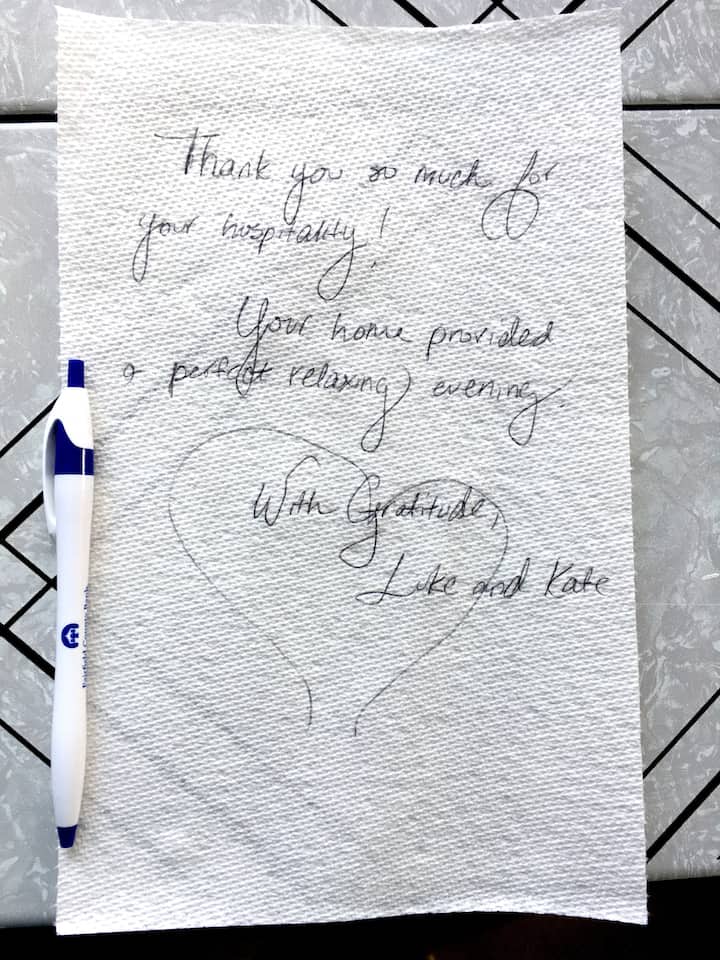 Thank you so much for
your hospitality!
Your home provided
a perfect relaxing evening.
With Gratitude,
Luke and Kate